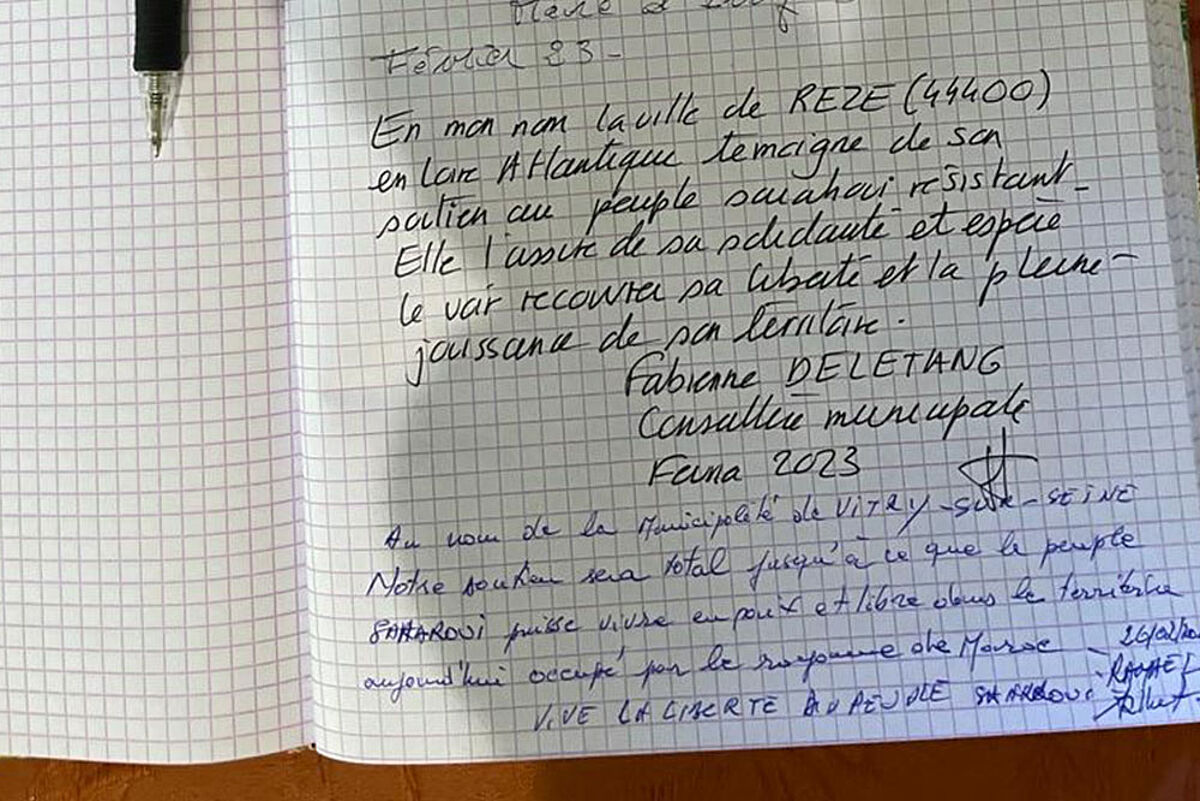 Février 23-
En mon nom la ville de REZE (44400)
en Loire Atlantique temoigne de son
soutien au peuple saharaoui resistant-
Elle l'assure de sa solidarité et espère
le voir recouvrer sa liberté et la pleine-
jouissance de son territoire.
Fabienne DELETANG
Conseillère municipale
2023
Au nom de la Municipalité de VITRY-SUR-SEINE
Notre soutien sera total jusqu'à ce que le peuple
SAHAROUI puisse vivre en paix et libre dans le territoire
aujourd'hui occupé par le royaume de Maroc -
VIVE LA LIBERTE AU PEUPLE SAHAROUI